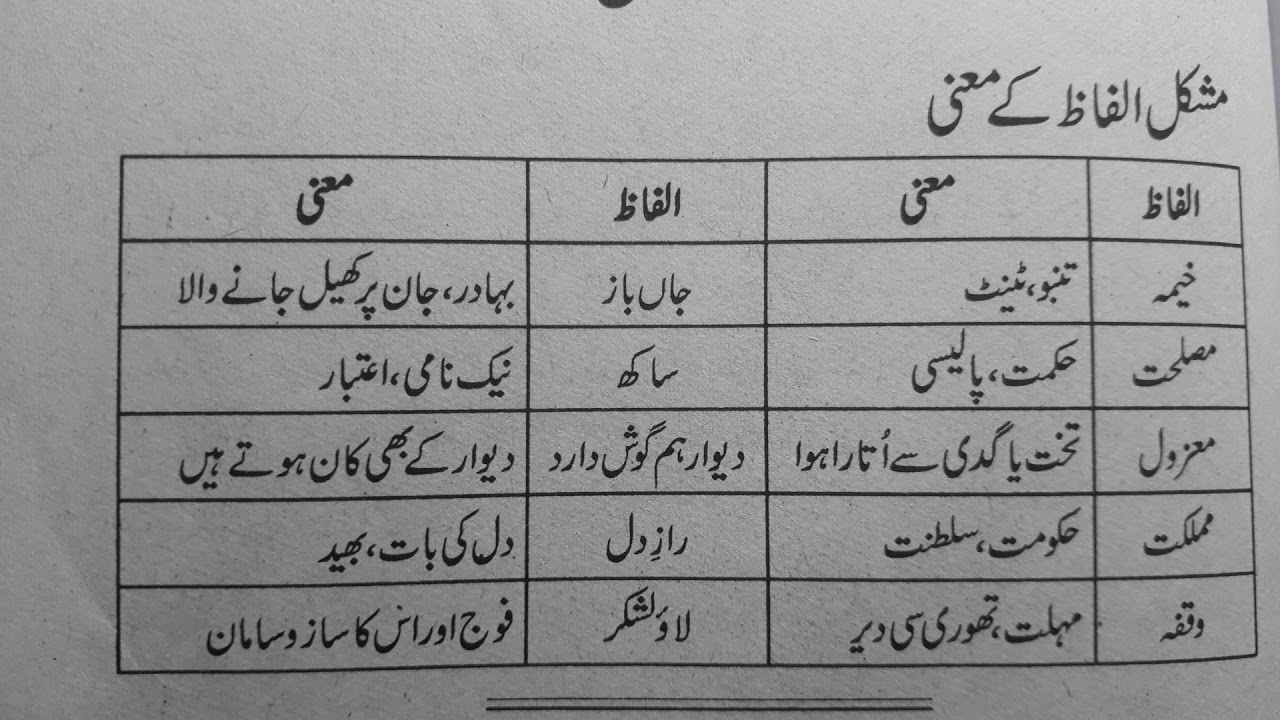 مشکل الفاظ کے معنی
الفاظ معنی الفاظ معنی
خیمہ تنبو، ٹینٹ جاں باز بہادر، جان پر کھیل جانے والا
مصلحت حکمت، پالیسی ساکھ نیک نامی، اعتبار
معزول تخت یا گدی سے اُتارا ہوا دیوار ہم گوش دارد دیوار کے بھی کان ہوتے ہیں
مملکت حکومت، سلطنت رازِ دل دل کی بات، بھید
وقفہ مہلت، تھوری سی دیر لاؤ لشکر فوج اور اس کا ساز و سامان